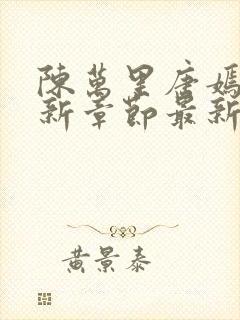 陳萬里唐嫣
新章節最新
黃景泰